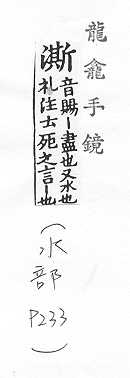 龍龕手鏡
澌
音賜—盡也又水也
札注士死之言—也
(水部P233)